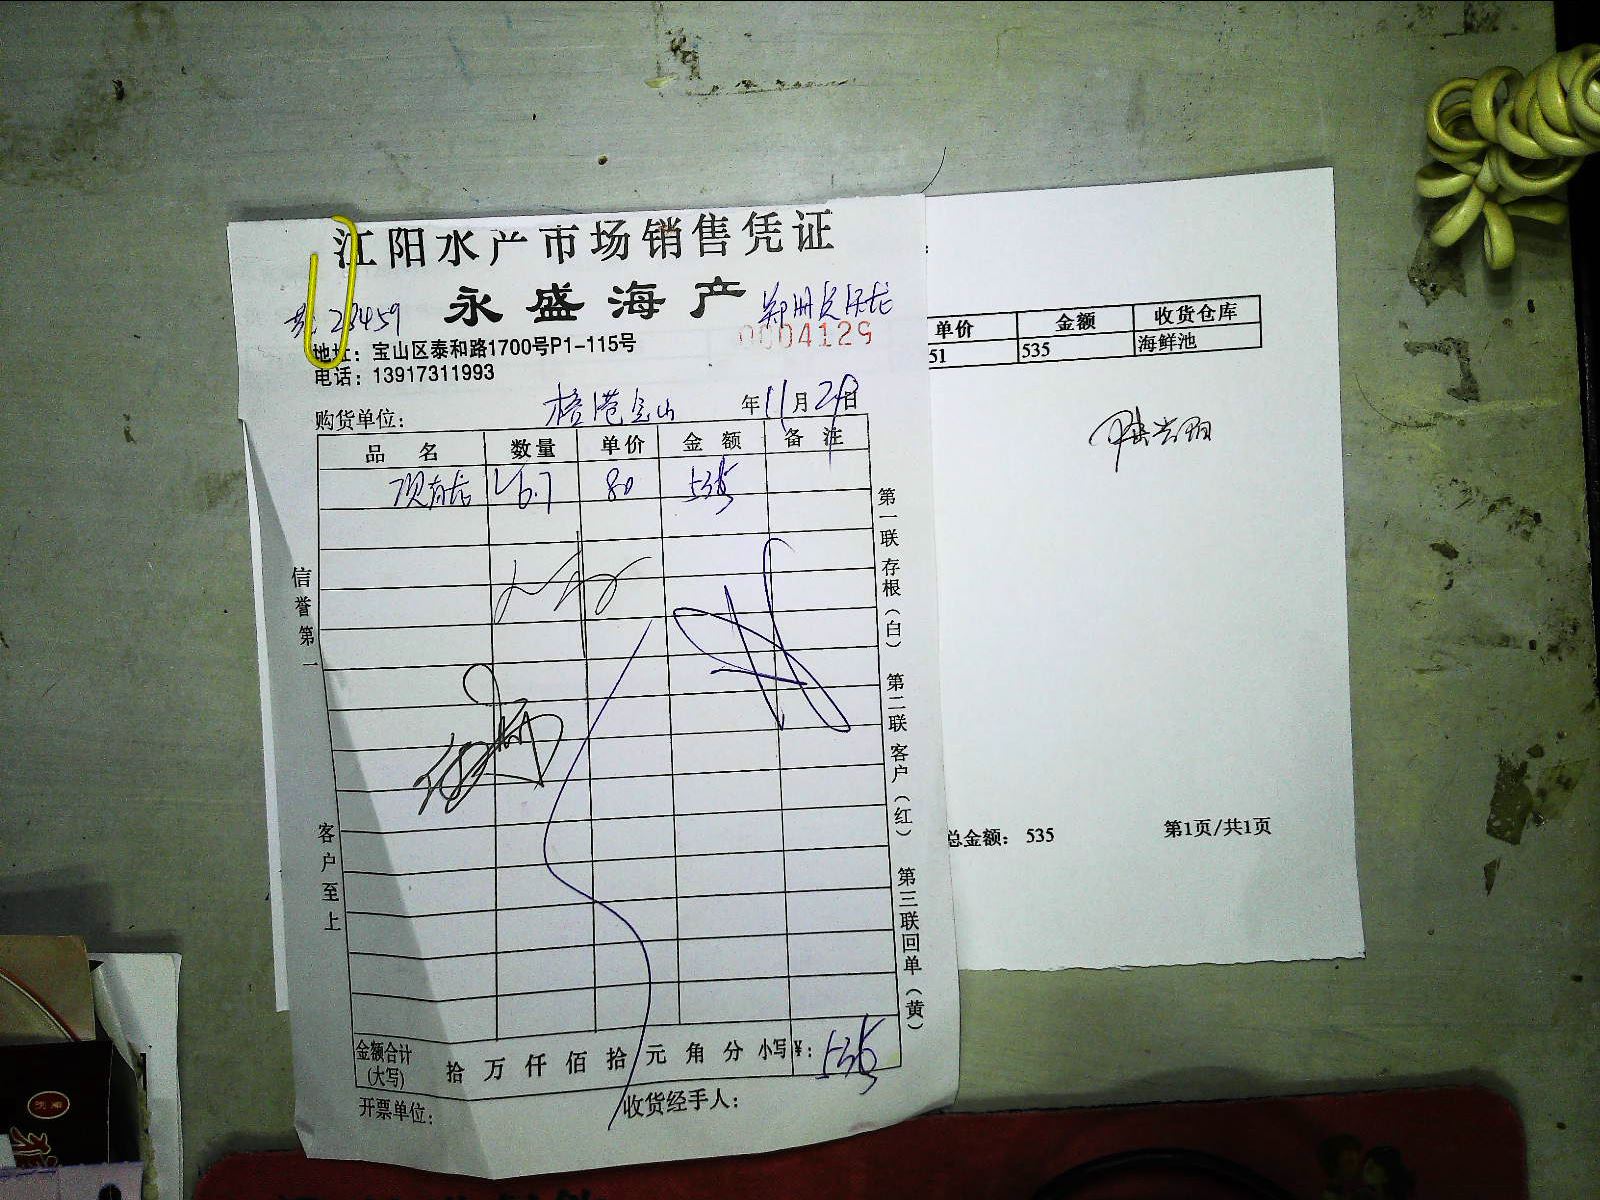 江阳水产市场销售凭证
永盛海产
28459
0004129
地址：宝山区泰和路1700号P1-115号
电话：13917311993
购货单位： 宝山 年11月29日
品 名 数量 单价 金 额 备 注
6.7 80 535
信誉第一 客户至上
第一联 存根（白） 第二联 客户（红） 第三联 回单（黄）
金额合计(大写) 拾 万 仟 佰 拾 元 角 分 小写¥： 535
开票单位： 收货经手人：
单价 金额 收货仓库
51 535 海鲜池
总金额： 535 第1页/共1页